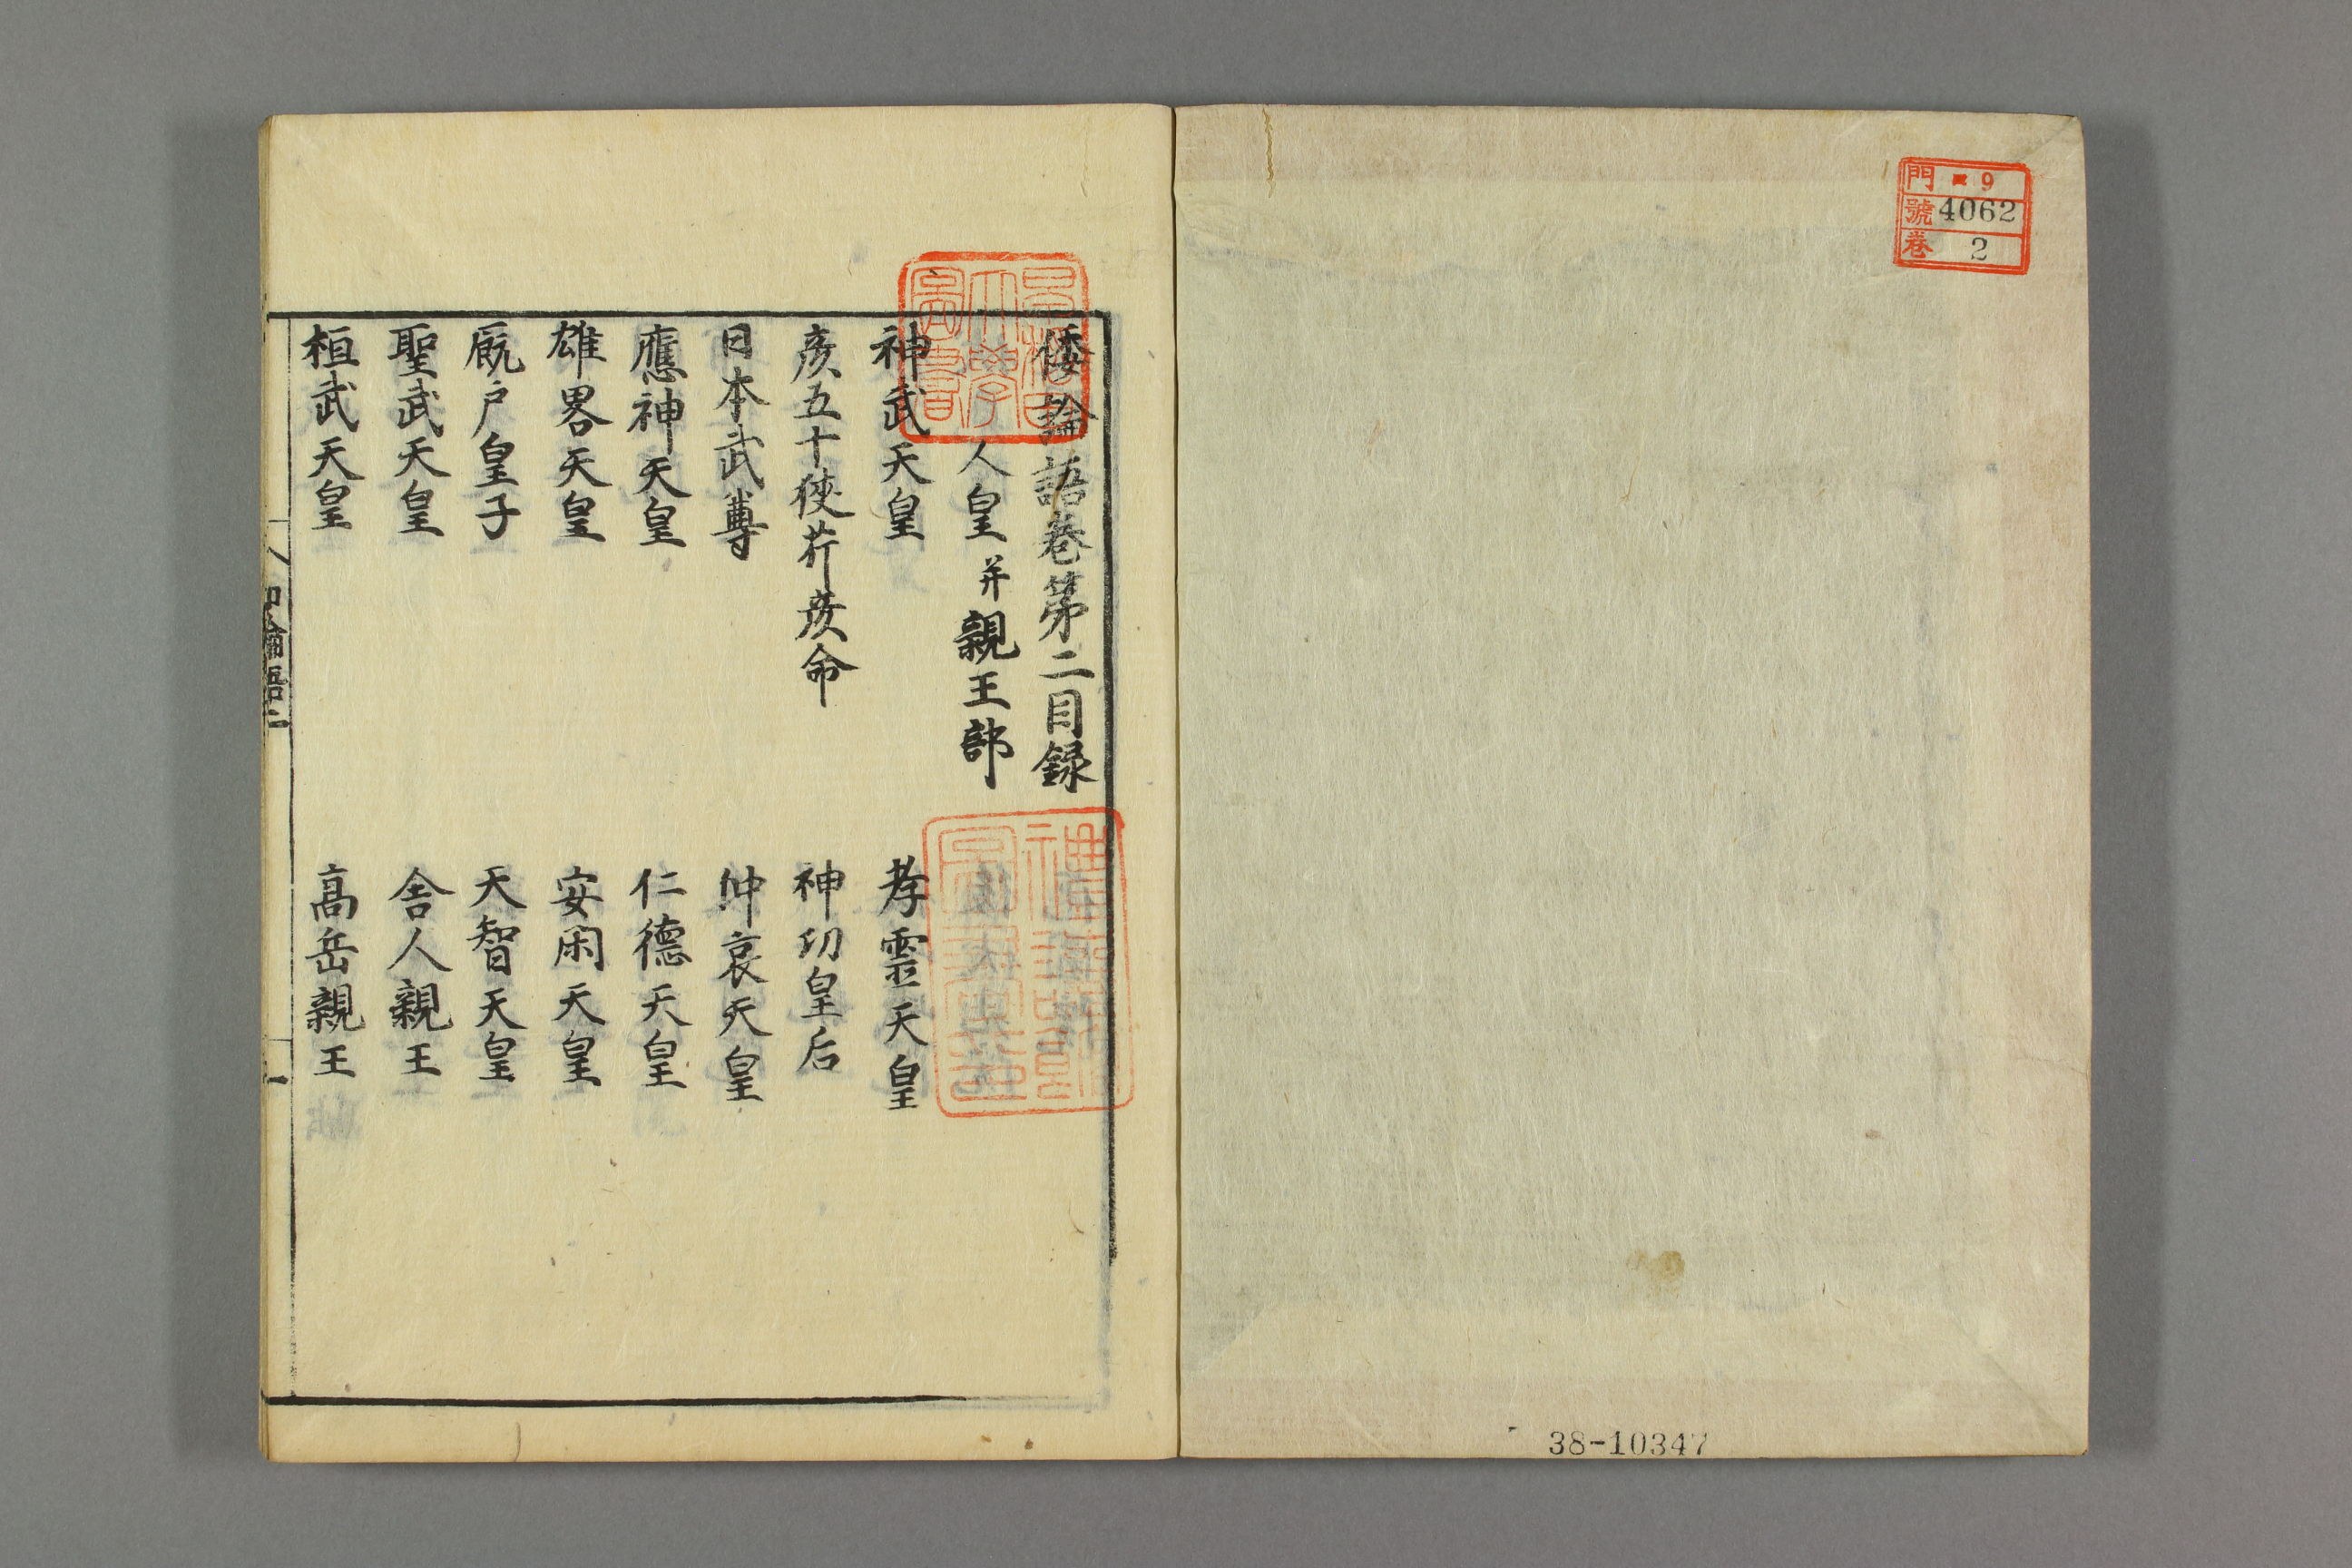 門 9
號 4062
巻 2
38-10347
倭論語巻第二目録
人皇并親王部
神武天皇 孝霊天皇
彦五十狹芹彦命 神功皇后
日本武尊 仲哀天皇
應神天皇 仁德天皇
雄畧天皇 安閑天皇
厩戸皇子 天智天皇
聖武天皇 舎人親王
桓武天皇 高岳親王
和論語二
一